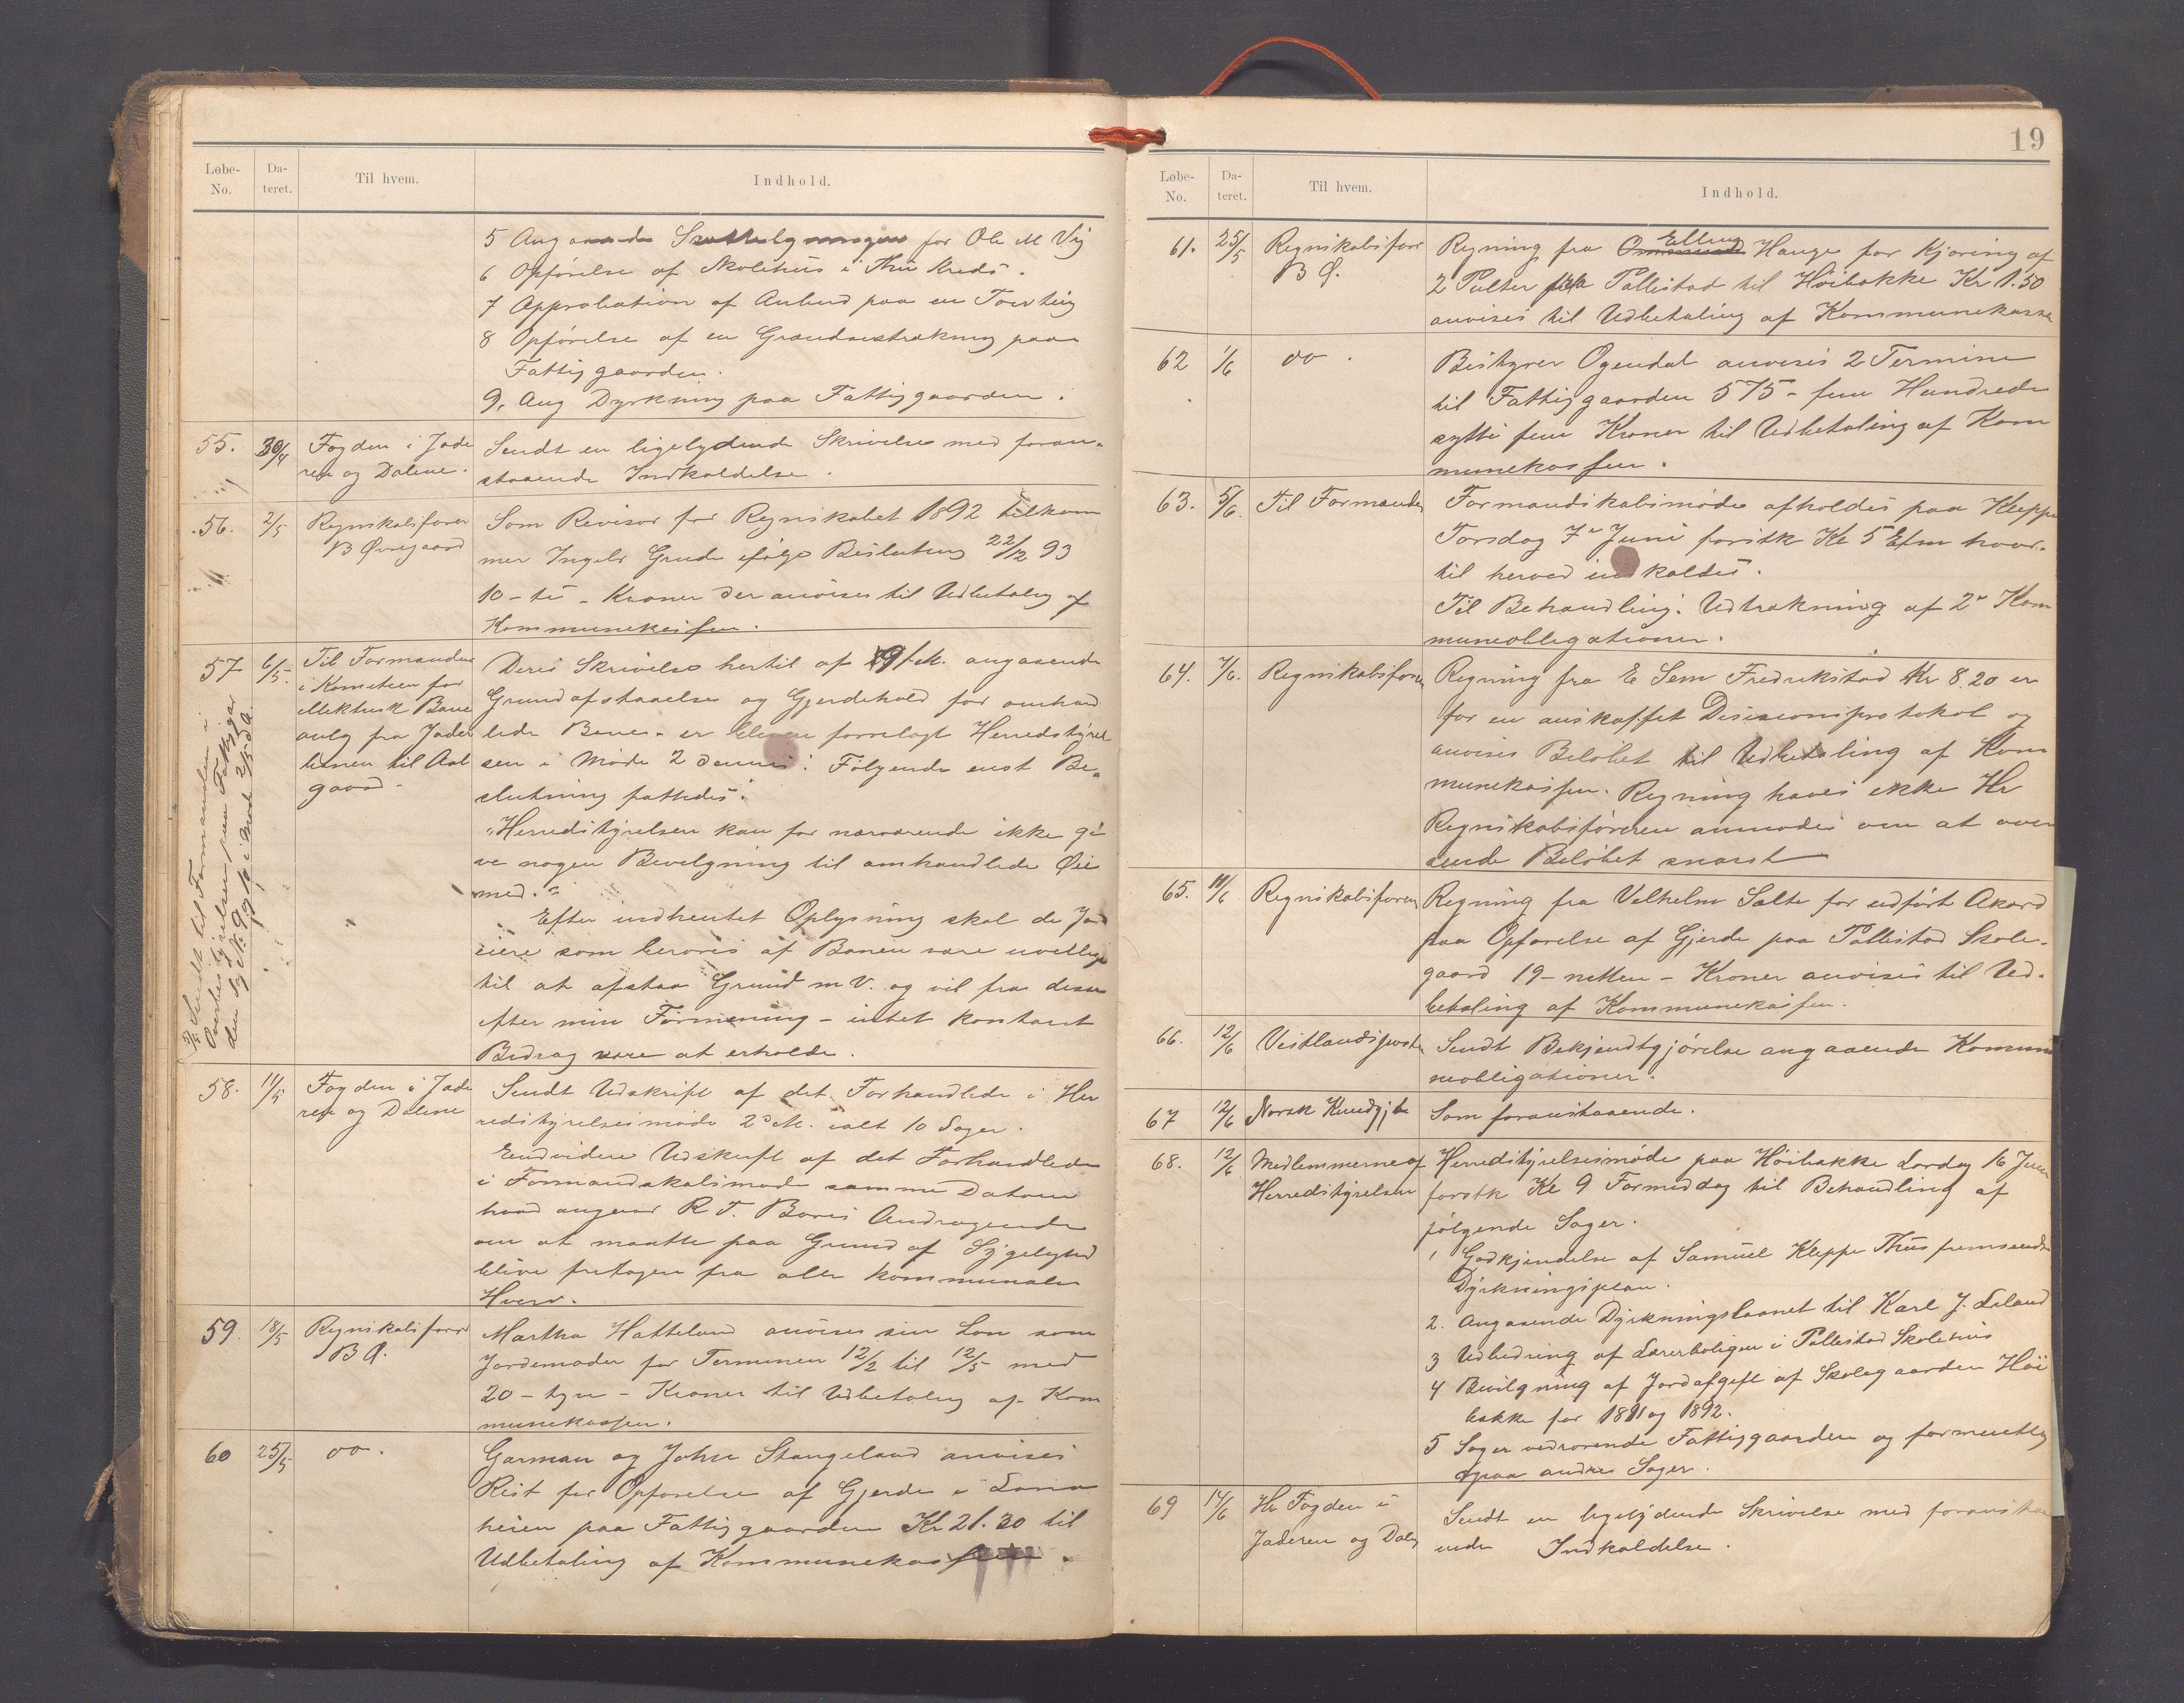 Løbe-No. Dateret. Til hvem. Indhold.
5 Angaaende for Ole M Vig
6 Opførelse af Skolehus i Thu Kreds.
7 Approbation af Anbud paa en Torvting
8 Opførelse af en Grændsestrækning paa
Fattiggaarden.
9, Ang Dyrkning paa Fattiggaarden.
55. 30/4 Fogden i Jade
ren og Dalene.
Sendt en ligelydende Skrivelse med foran-
staaende Indkaldelse.
56. 2/5 Regnskabsfører
B Øvregaard
Som Revisor for Regnskabet 1892 tilkom
mer Ingeb. Grude ifølge Beslutning 22/12 93
10 - ti - Kroner der anvises til Udbetaling af
Kommunekassen.
57 6/5. Til Formanden
i Komiteen for
elektrisk Bane
anlg fra Jader
banen til Aal
gaard -
Deres Skrivelse hertil af 29 f.M. angaaende
Grundafstaaelse og Gjerdehold for omhand
lede Bane - er bleven forelagt Herredstyrel
sen i Møde 2 dennes: Følgende enst Be-
slutning fattedes:
"Herredstyrelsen kan for nærværende ikke gi
ve nogen Bevilgning til omhandlede Øie
med."
Efter indhentet Oplysning skal de Jord
eiere som berøres af Banen være uvillige
til at afstaa Grund m V. og vil fra disse
efter min Formening - intet kontant
Bidrag være at erholde.
5/5 Sendt til Formanden i
Overbestyrelsen paa Fattiggaar
den Sag No 9 og 10 i Møde 2/5 d.A.
58. 11/5 Fogden i Jade
ren og Dalene
Sendt Udskrift af det Forhandlede i Her
redstyrelsesmøde 2 d.M. ialt 10 Sager.
Endvidere Udskrift af det Forhandlede
i Formandskabsmøde samme Datum
hvad angaar R T. Bores Andragende
om at maatte paa Grund af Sygelighed
blive fritagen fra alle kommunale
Hverv.
59. 18/5 Regnskabsfører
B Ø.
Martha Hatteland anvises sin Løn som
Jordemoder for Terminen 12/2 til 12/5 med
20 - tyve - Kroner til Udbetaling af Kom
munekassen.
60 25/5 do.
Garman og John Stangeland anvises
Rest for Opførelse af Gjerde i
heien paa Fattiggaarden Kr 21.30 til
Udbetaling af Kommunekassen.
19
Løbe-No. Dateret. Til hvem. Indhold.
61. 25/5 Regnskabsfører
B Ø.
Regning fra Omund Elling Hauge for Kjøring af
2 Pulter fra Pollestad til Høibakke Kr 1.50
anvises til Udbetaling af Kommunekasse
62 1/6 do.
Bestyrer Ogendal anvises 2 Termine
til Fattiggaarden 575 - fem Hundrede
sytti fem Kroner til Udbetaling af Kom
munekassen.
63. 5/6. Til Formænde
Formandskabsmøde afholdes paa Kleppe
Torsdag 7de Juni førstk Kl 5 Efm hvor-
til herved indkaldes.
Til Behandling: Udtrækning af 2de Kom
muneobligationer.
64. 7/6. Regnskabsfører
Regning fra E Sem Fredrikstad Kr 8.20 er
for en anskaffet Desisionsprotokol og
anvises Beløbet til Udbetaling af Kom
munekassen. Regning haves ikke Hr
Regnskabsføreren anmodes om at over
sende Beløbet snarest
65. 11/6 Regnskabsføren
Regning fra Velhelm Salte for udført Akord
paa Opførelse af Gjerde paa Pollestad Skole-
gaard 19 - nitten - Kroner anvises til Ud-
betaling af Kommunekassen.
66. 12/6 Vestlandsposten
Sendt Bekjendtgjørelse angaaende Kommu
neobligationer.
67 12/6 Norsk Kundgjte
Som foranstaaende.
68. 12/6 Medlemmerne af
Herredstyrelsen
Herredstyrelsesmøde paa Høibakke Lørdag 16 Juni
førstk Kl 9 Formiddag til Behandling af
følgende Sager.
1 Godkjendelse af Samuel Kleppe Thus fremsendte
Dyrkningsplan.
2. Angaaende Dyrkningslaanet til Karl J. Leland
3 Udbedring af Lærerboligen i Pollestad Skolehus
4 Bevilgning af Jordafgift af Skolegaarden Høi
bakke for 1891 og 1892.
5 Sager vedrørende Fattiggaarden og formentlig
ogsaa andre Sager.
69 14/6 Hr Fogden i
Jaderen og Dale
Sendt en ligelydende Skrivelse med foransta
ende Indkaldelse.